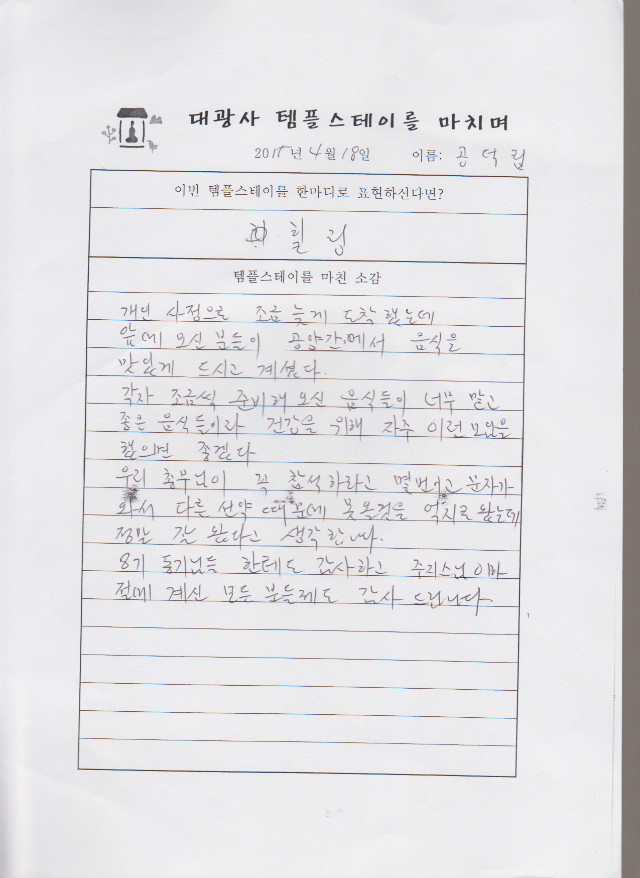 대광사 템플스테이를 마치며
2015년 4월 18일 이름: 공덕림
이번 템플스테이를 한마디로 표현하신다면?
힐링
템플스테이를 마친 소감
개인 사정으로 조금 늦게 도착했는데
앞에 오신 분들이 공양간에서 음식을
맛있게 드시고 계셨다.
각자 조금씩 준비해 오신 음식들이 너무 많고
좋은 음식들이라 건강을 위해 자주 이런 모임을
했으면 좋겠다
우리 총무님이 꼭 참석하라고 몇번이고 문자가
와서 다른 선약 때문에 못올것을 억지로 왔는데
정말 잘 왔다고 생각합니다.
8기 동기님들 한테도 감사하고 주지스님 이하
절에 계신 모든 분들께도 감사 드립니다.